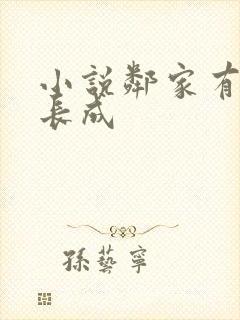 小說鄰家有
長成
孫藝寧